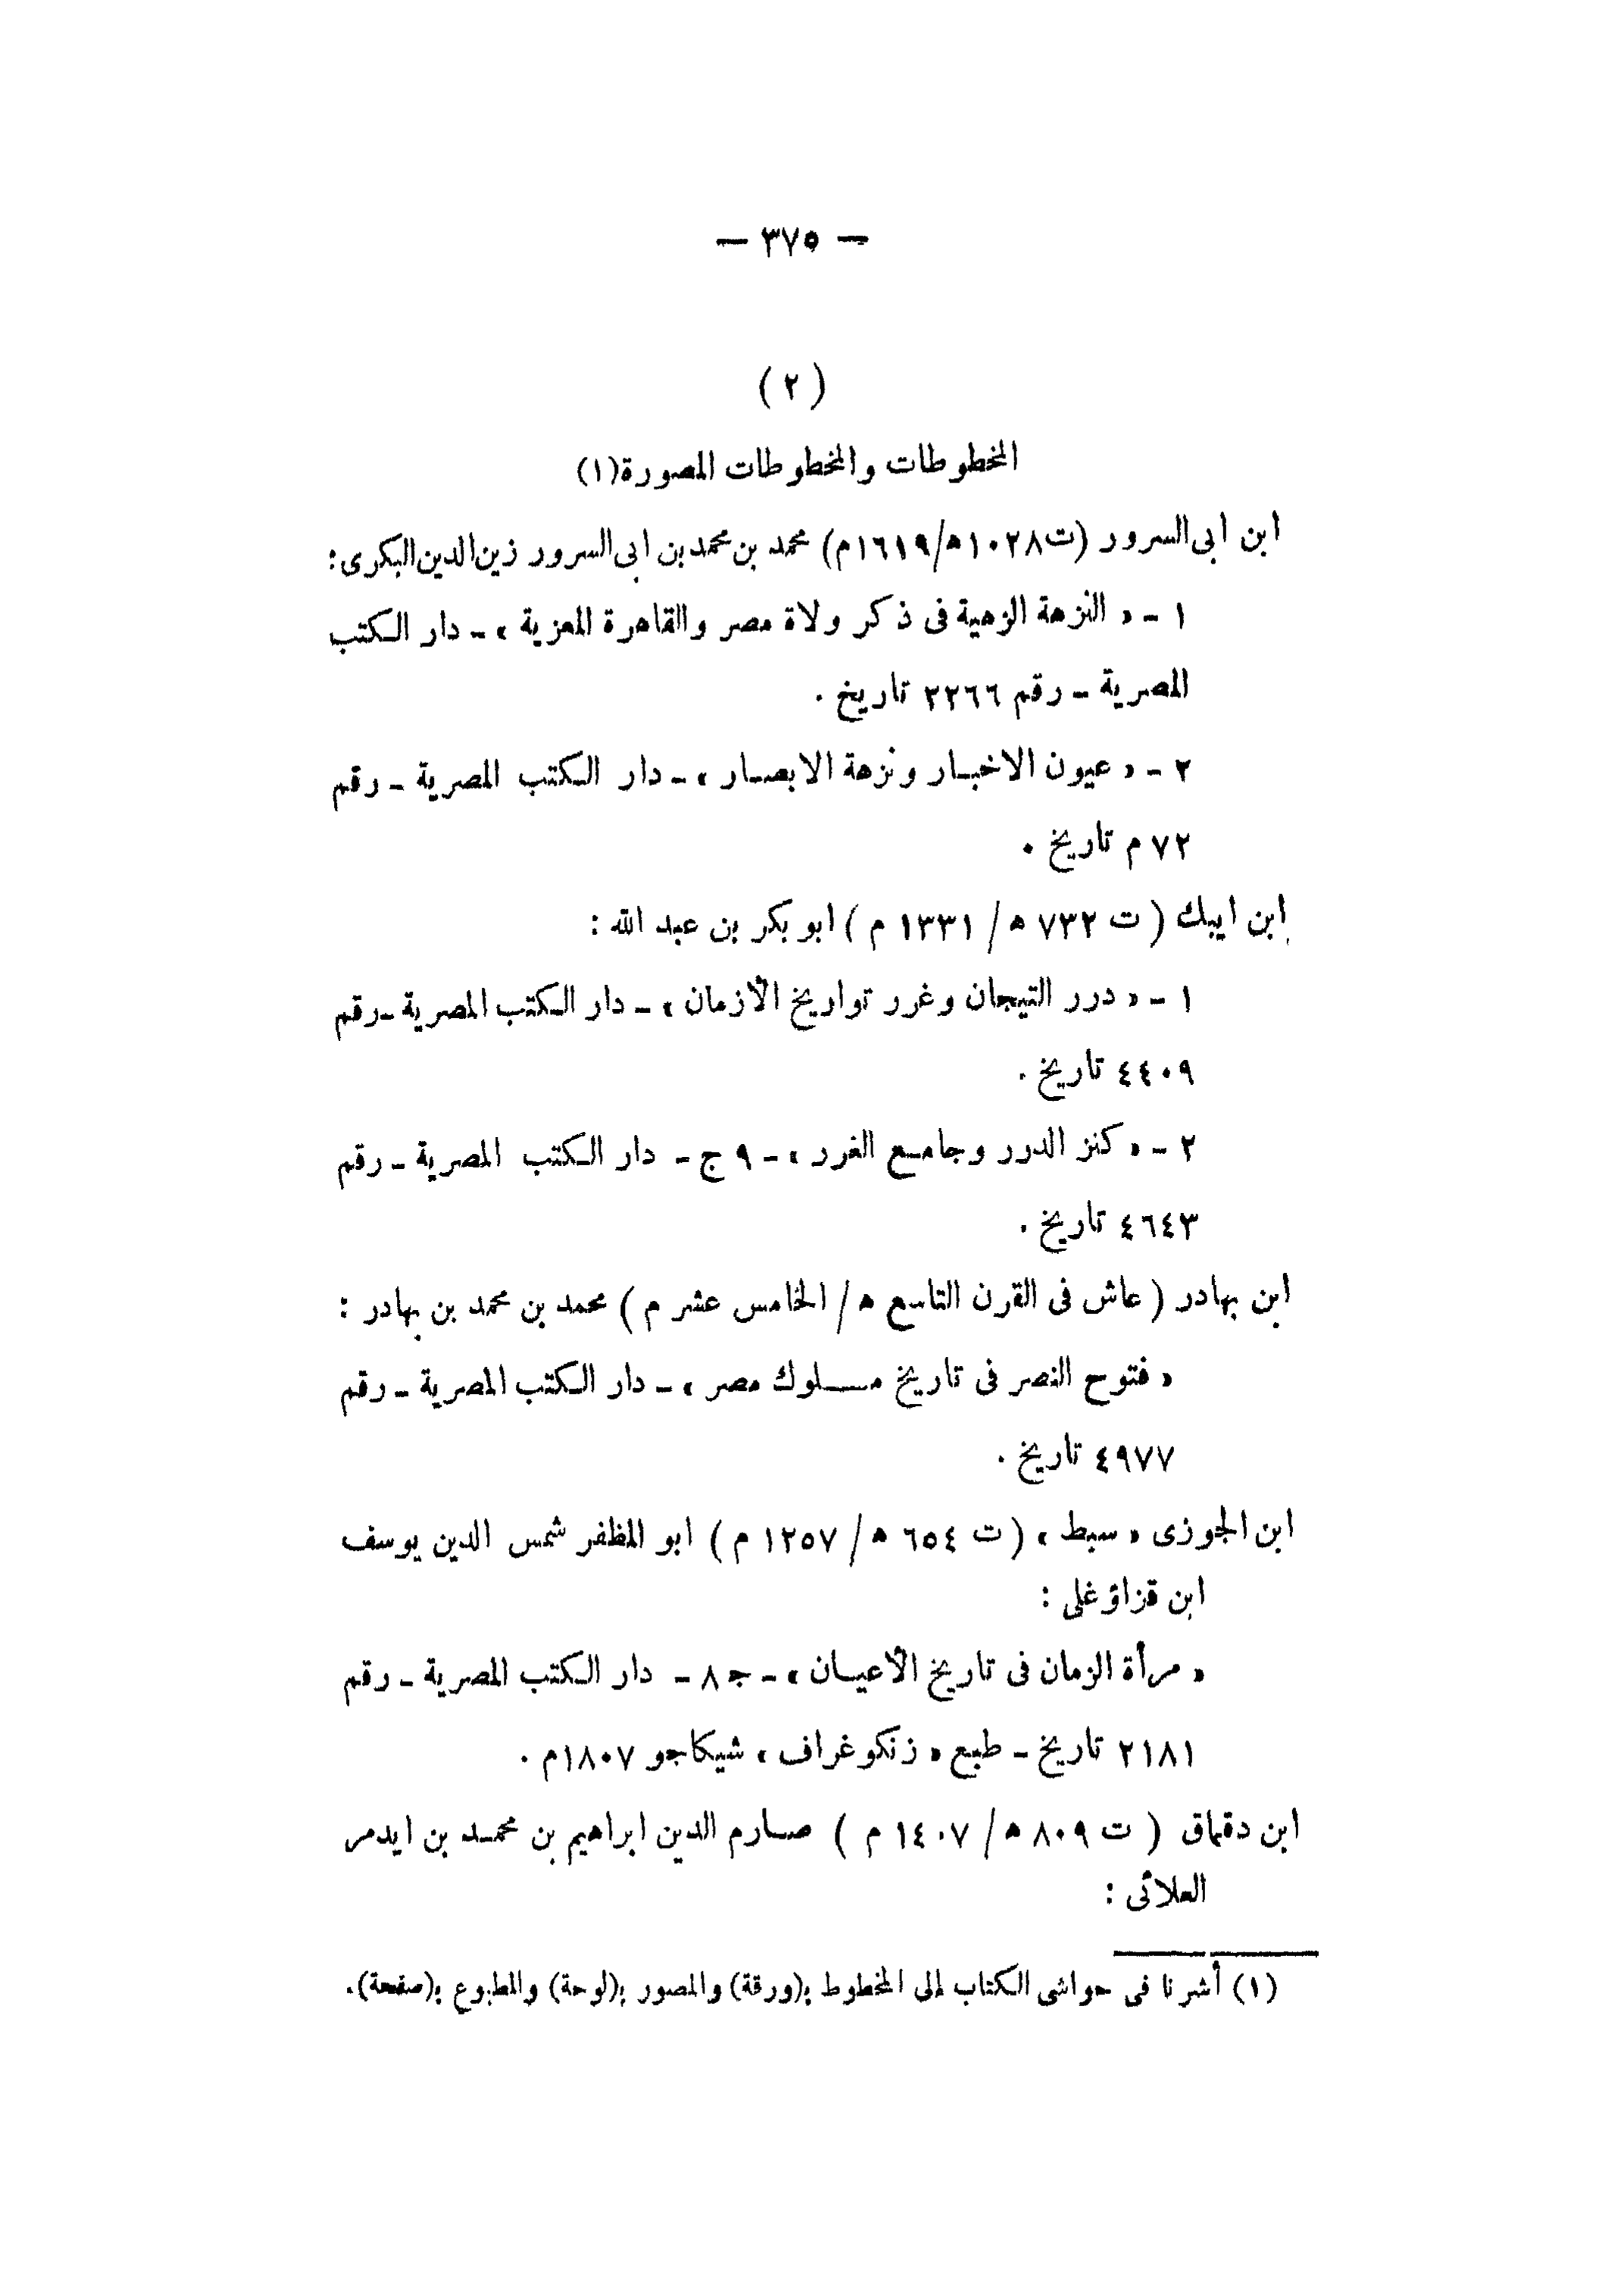 — ٣٧٥ —
( ٢ )
المخطوطات والمخطوطات المصورة(١)
ابن ابى السرور (ت١٠٢٨ه/١٦١٩م) محمد بن محمد بن ابى السرور زين الدين البكرى:
١ - « النزهة الزهية فى ذكر ولاة مصر والقاهرة المعزية » - دار الكتب
المصرية - رقم ٢٢٦٦ تاريخ .
٢ - « عيون الاخبار ونزهة الابصار » - دار الكتب المصرية - رقم
٧٢ م تاريخ .
ابن ايبك ( ت ٧٣٢ ه / ١٣٣١ م ) ابو بكر بن عبد الله :
١ - « درر التيجان وغرر تواريخ الأزمان » - دار الكتب المصرية - رقم
٤٤٠٩ تاريخ .
٢ - « كنز الدرر وجامع الغرر » - ٩ ج - دار الكتب المصرية - رقم
٤٦٤٣ تاريخ .
ابن بهادر ( عاش فى القرن التاسع ه / الخامس عشر م ) محمد بن محمد بن بهادر :
« فتوح النصر فى تاريخ ملوك مصر » - دار الكتب المصرية - رقم
٤٩٧٧ تاريخ .
ابن الجوزى « سبط » ( ت ٦٥٤ ه / ١٢٥٧ م ) ابو المظفر شمس الدين يوسف
ابن قزاؤغلى :
« مرأة الزمان فى تاريخ الأعيان » - ج ٨ - دار الكتب المصرية - رقم
٢١٨١ تاريخ - طبع « زنكوغراف » شيكاجو ١٨٠٧م .
ابن دقماق ( ت ٨٠٩ ه / ١٤٠٧ م ) صارم الدين ابراهيم بن محمد بن ايدمر
العلائى :
(١) أشرنا فى حواشى الكتاب إلى المخطوط بـ(ورقة) والمصور بـ(لوحة) والمطبوع بـ(صفحة).